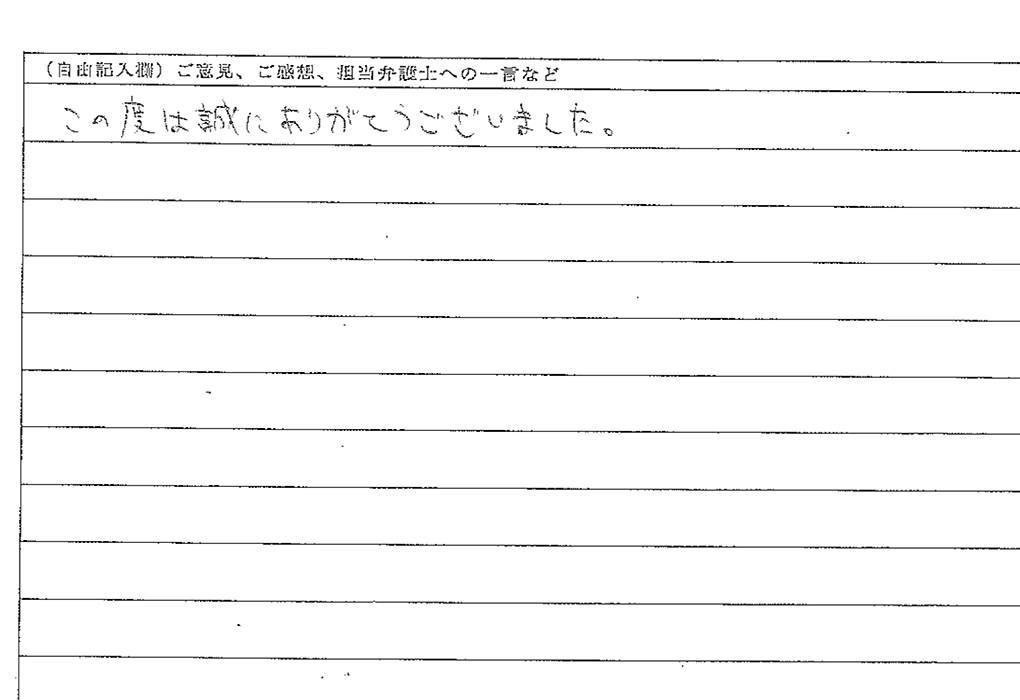 （自由記入欄）ご意見、ご感想、担当弁護士への一言など
この度は誠にありがとうございました。